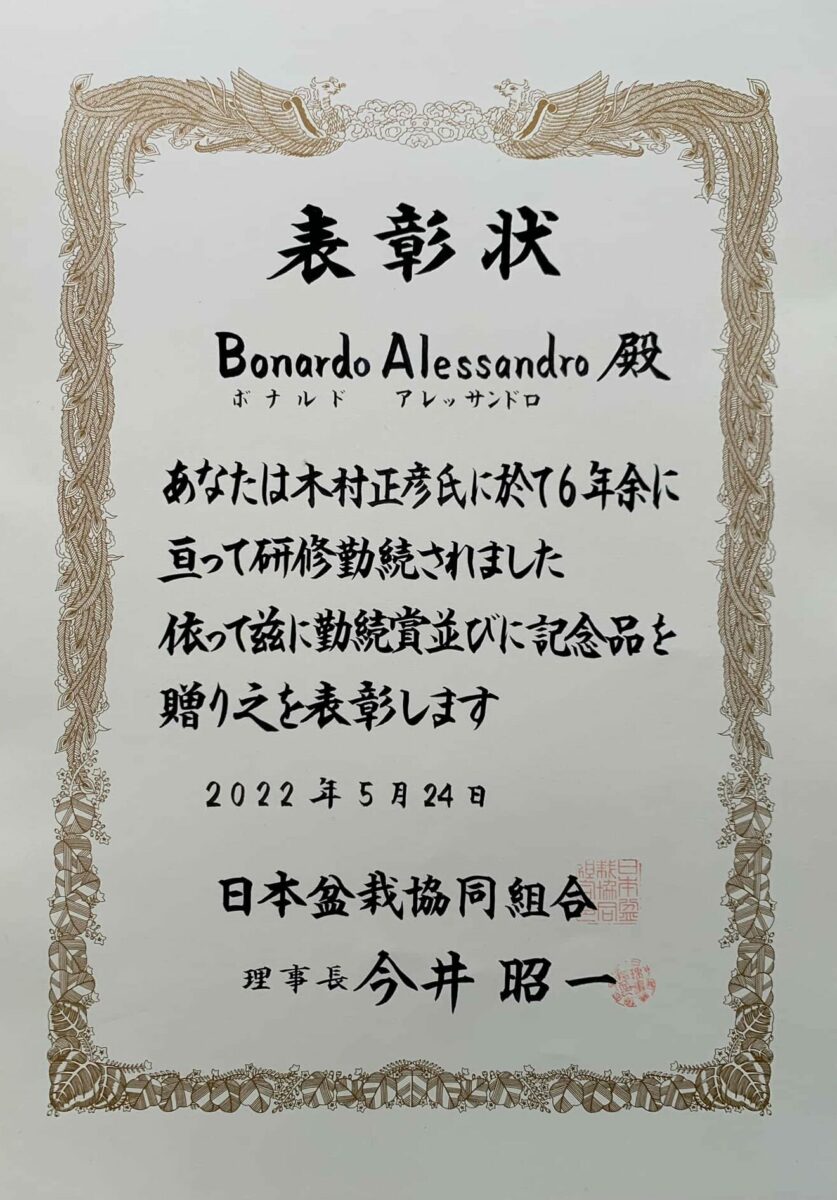 表彰状
Bonardo Alessandro 殿
ボナルド アレッサンドロ
あなたは木村正彦氏に於て6年余に
亘って研修勤続されました
依って玆に勤続賞並びに記念品を
贈り之を表彰します
2022年5月24日
日本盆栽協同組合
理事長 今井昭一